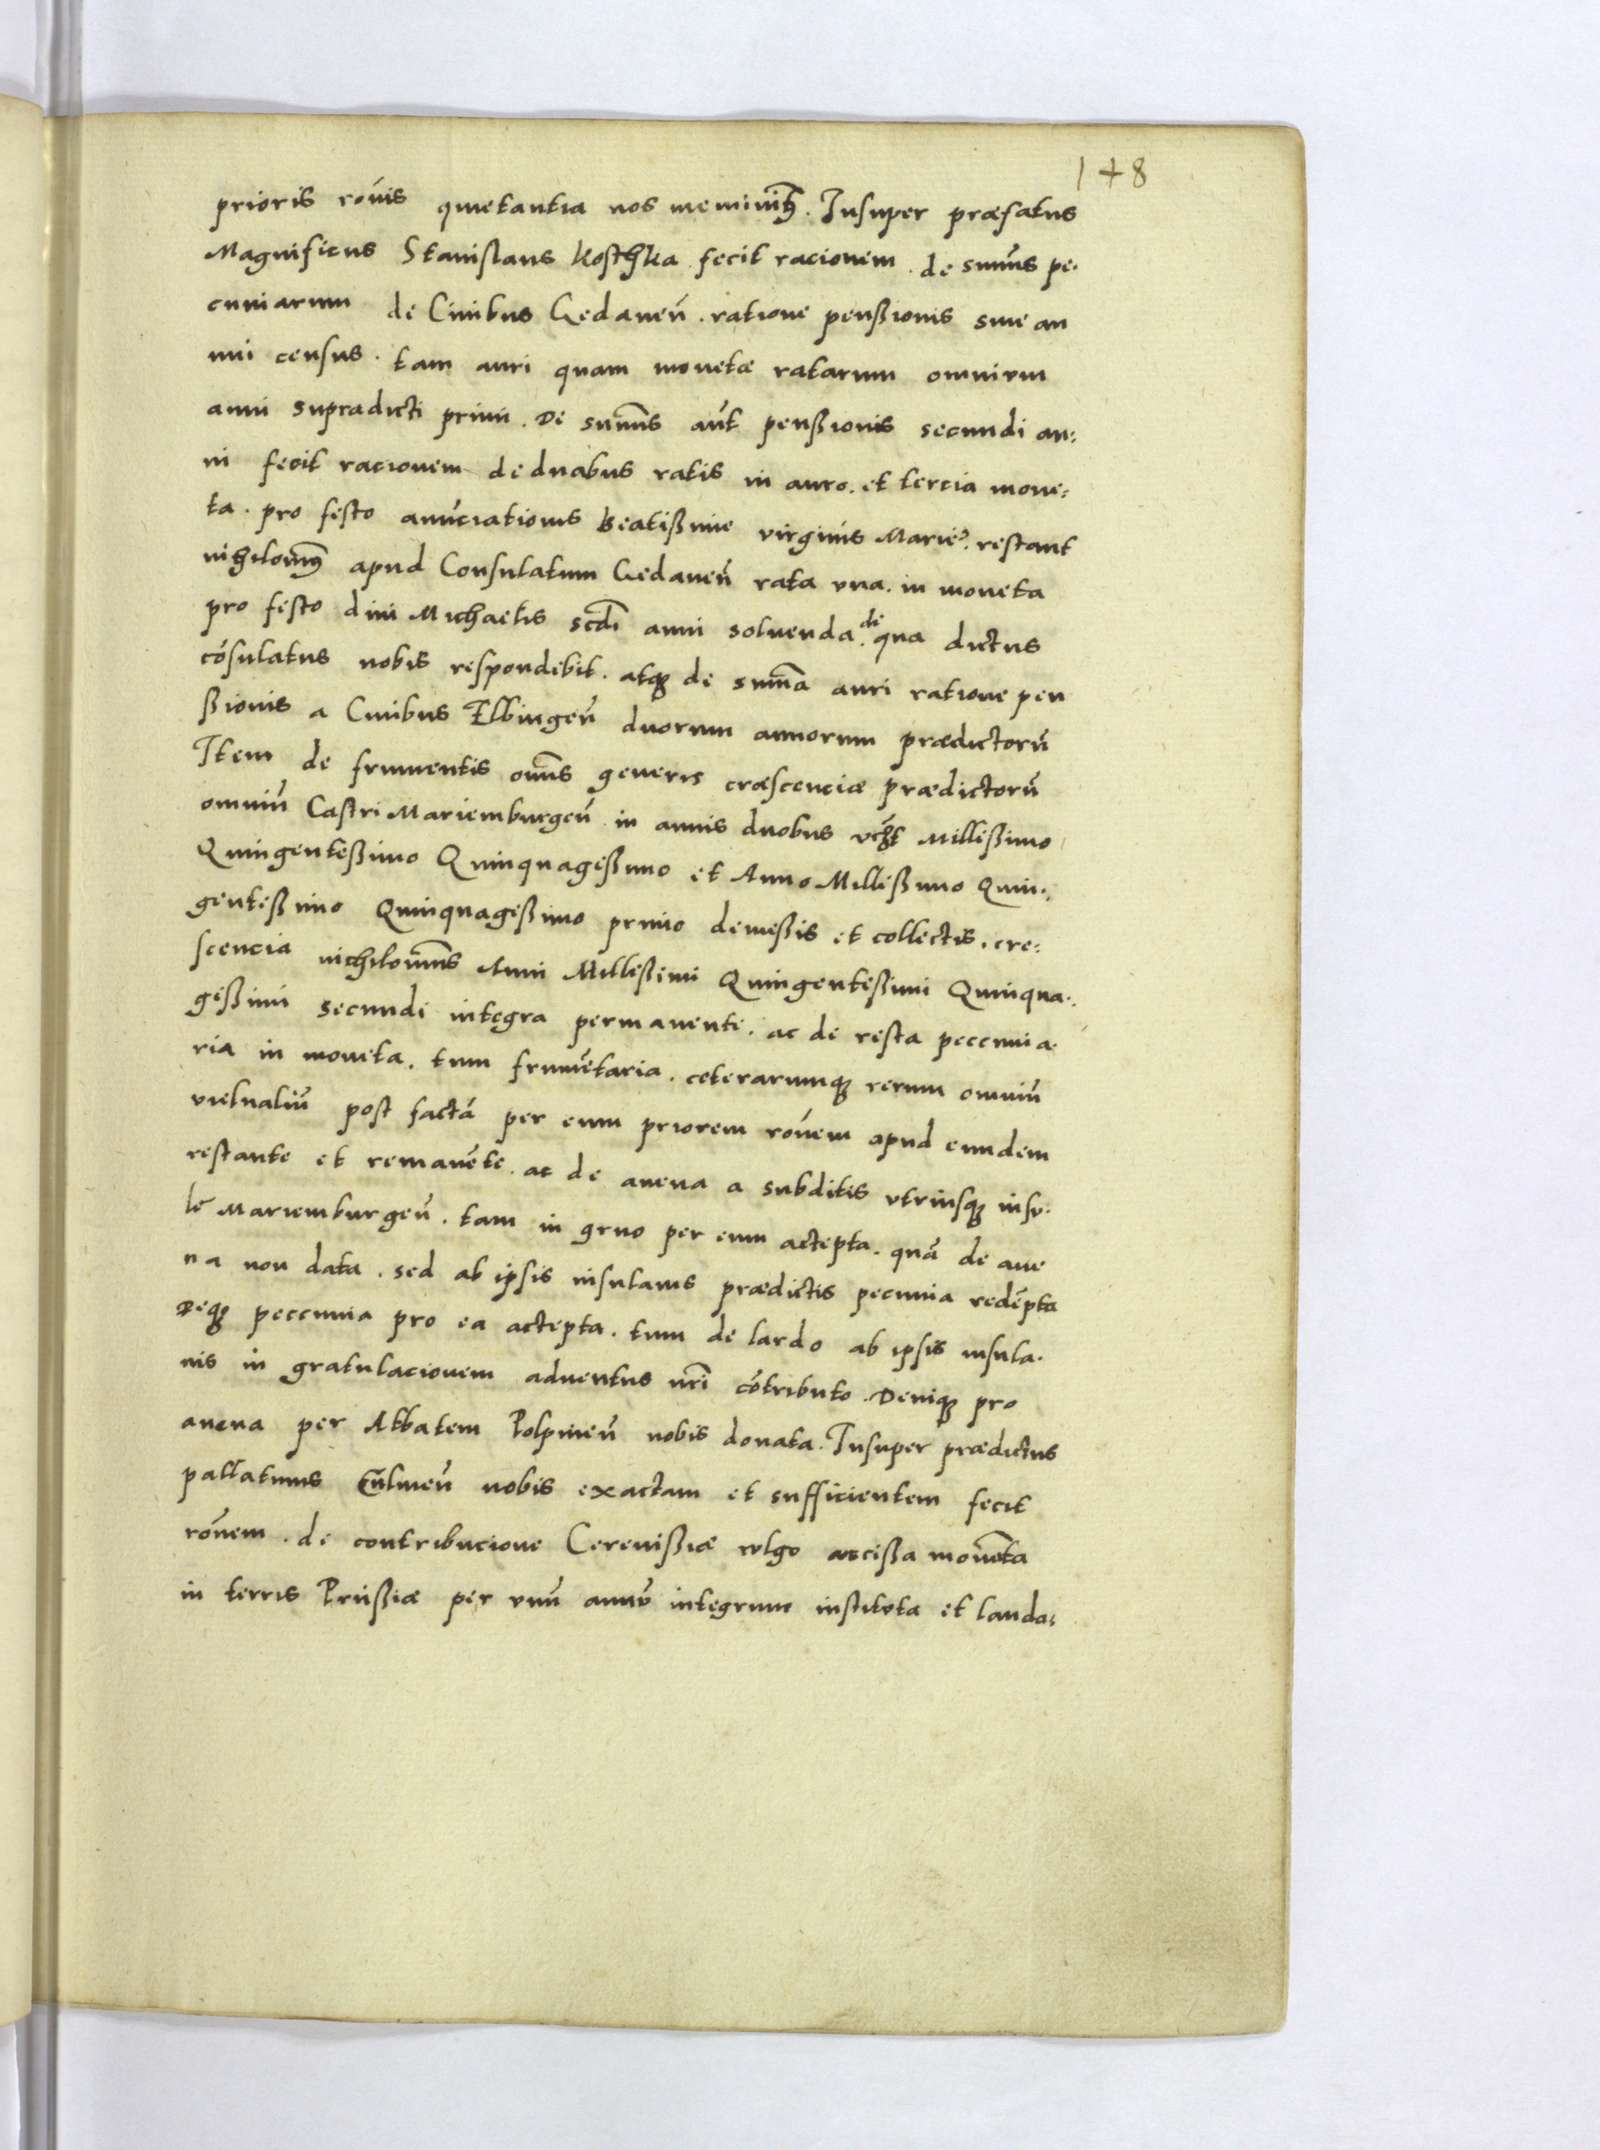 178
prioris rōnis quietantia nos meminim9. Insuper præfatus
Magnificus Stanislaus Kosthka fecit racionem de sum̄is pe-
cuniarum de Ciuibus Gedaneñ. ratione penßionis siue an
nui census. tam auri quam monetæ ratarum omnium
anni supradicti primi. De sum̄is aūt penßionis secundi an:
ni fecit racionem de duabus ratis in auro. et tercia mone:
ta. pro festo anūciationis Beatißime virginis Marię. restant
nihilomin9 apud Consulatum Gedaneñ rata vna. in moneta
pro festo diui Michaelis scdī anni soluenda. de qua dictus
cōsulatus nobis respondebit. atq3 de sum̄a auri ratione pen
ßionis a Ciuibus Elbingeñ duorum annorum prædictorū
Item de frumentis om̄is generis cræscenciæ prædictorū
omniū Castri Mariemburgeñ in annis duobus vz̄ Millesßimo
Quingenteßimo Quinquageßimo et Anno Milleßimo Quin:
genteßimo Quinquageßimo primo demeßis et collectis. cre:
scencia nichilomin̄s Anni Milleßimi Quingenteßimi Quinqua-
geßimi secundi integra permanente. ac de resta peccunia
ria in moneta. tum frumētaria. ceterarumq3 rerum omniū
victualiū post factā per eum priorem rōnem apud eundem
restante et remanēte. ac de auena a subditis vtriusq3 insu-
lę Mariemburgeñ. tam in grno per eum actepta. quā de aue
na non data. sed ab ipsis insulanis prædictis pecunia redēpta
Deq3 peccunia pro ea actepta. tum de lardo ab ipsis insula-
nis in gratulacionem aduentus nrī cōtributo. Deniq3 pro
auena per Abbatem Polpineñ nobis donata. Insuper prædictus
pallatinus Culmeñ nobis exactam et sufficientem fecit
rōnem. de contribucione Cereuißiæ vulgo accißa moneta
in terris Prußiæ per vnū annū integrum instituta et lauda: